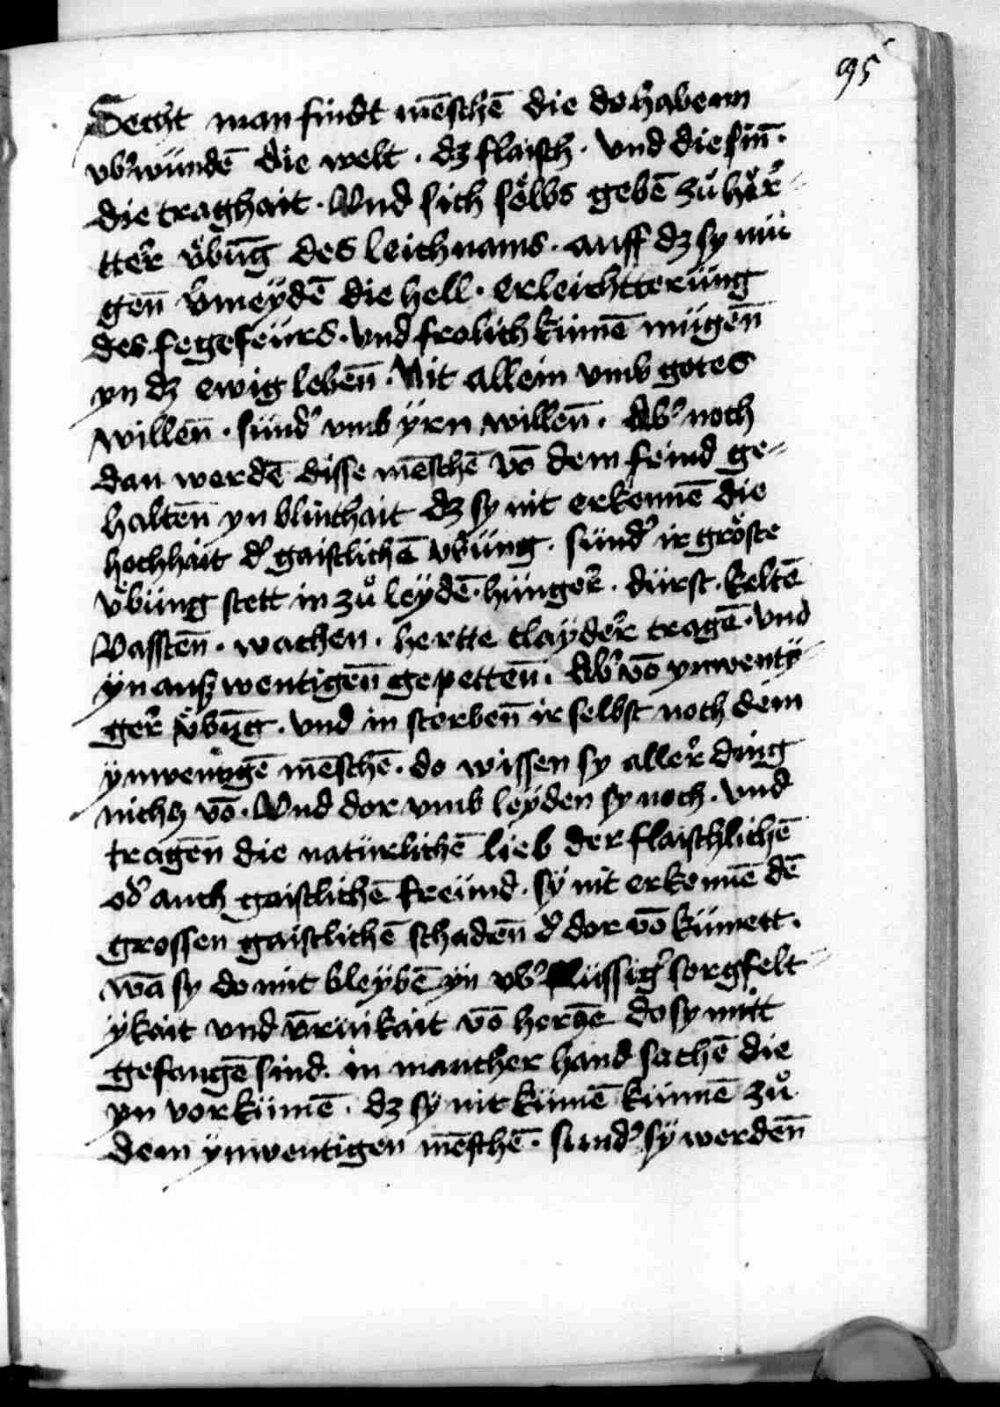 95
Secht man findt mēschē die do habenn
vb᷑wundē die welt · dz flaisch · vnd die sin̄ ·
die traghait · Vnd sich sëlbs gebē zů här⸗
tter᷑ v̈būg des leichnams · auff dz sy mü
gen̄ v̄meÿdē die hell · erleichtterüng
des fegefeürs · vnd frolich kümē mügen̄
yn dz ewig leben̄ · Nit allein vmb gotes
willen̄ · sünd᷑ vmb ÿrn willen̄ · Ab᷑ noch
dan werdē disse mēschē vō dem feind ge⸗
halten̄ yn blinthait dz sy nit erkennē die
hochhait d᷑ gaistlichē v̈büng · sünd᷑ ir gröste
v̈büng stett in zů leÿdē · hünger᷑ · dürst · keltē
Vassten̄ · wachen · hertte clayder᷑ tragē · vnd
yn ausz wentigen̄ gepetten̄ · Ab᷑ vō ynwenty⸗
ger᷑ v̈būg · vnd in sterben̄ ir selbst noch dem
ynwentigē mēschē · do wissen sy aller᷑ ding
nichcz vō · Vnd dor vmb leyden sy noch · vnd
tragen̄ die natürlichē lieb der flaischlichē
od᷑ auch gaistlichē freünd · sÿ nit erkennē dē
grossen gaistlichē schaden̄ d᷑ dor vō kümett ·
wā sy do mit bleybē yn vb᷑ flüssig᷑ sorgfelt⸗
ÿkait vnd v̄rükait vō herczē do sy mitt
gefangē sind · in mancher hand sachē die
yn vorkümē · dz sÿ nit kümē künnē zů
dem ynwentigen mēschē · sund᷑ sÿ werden̄